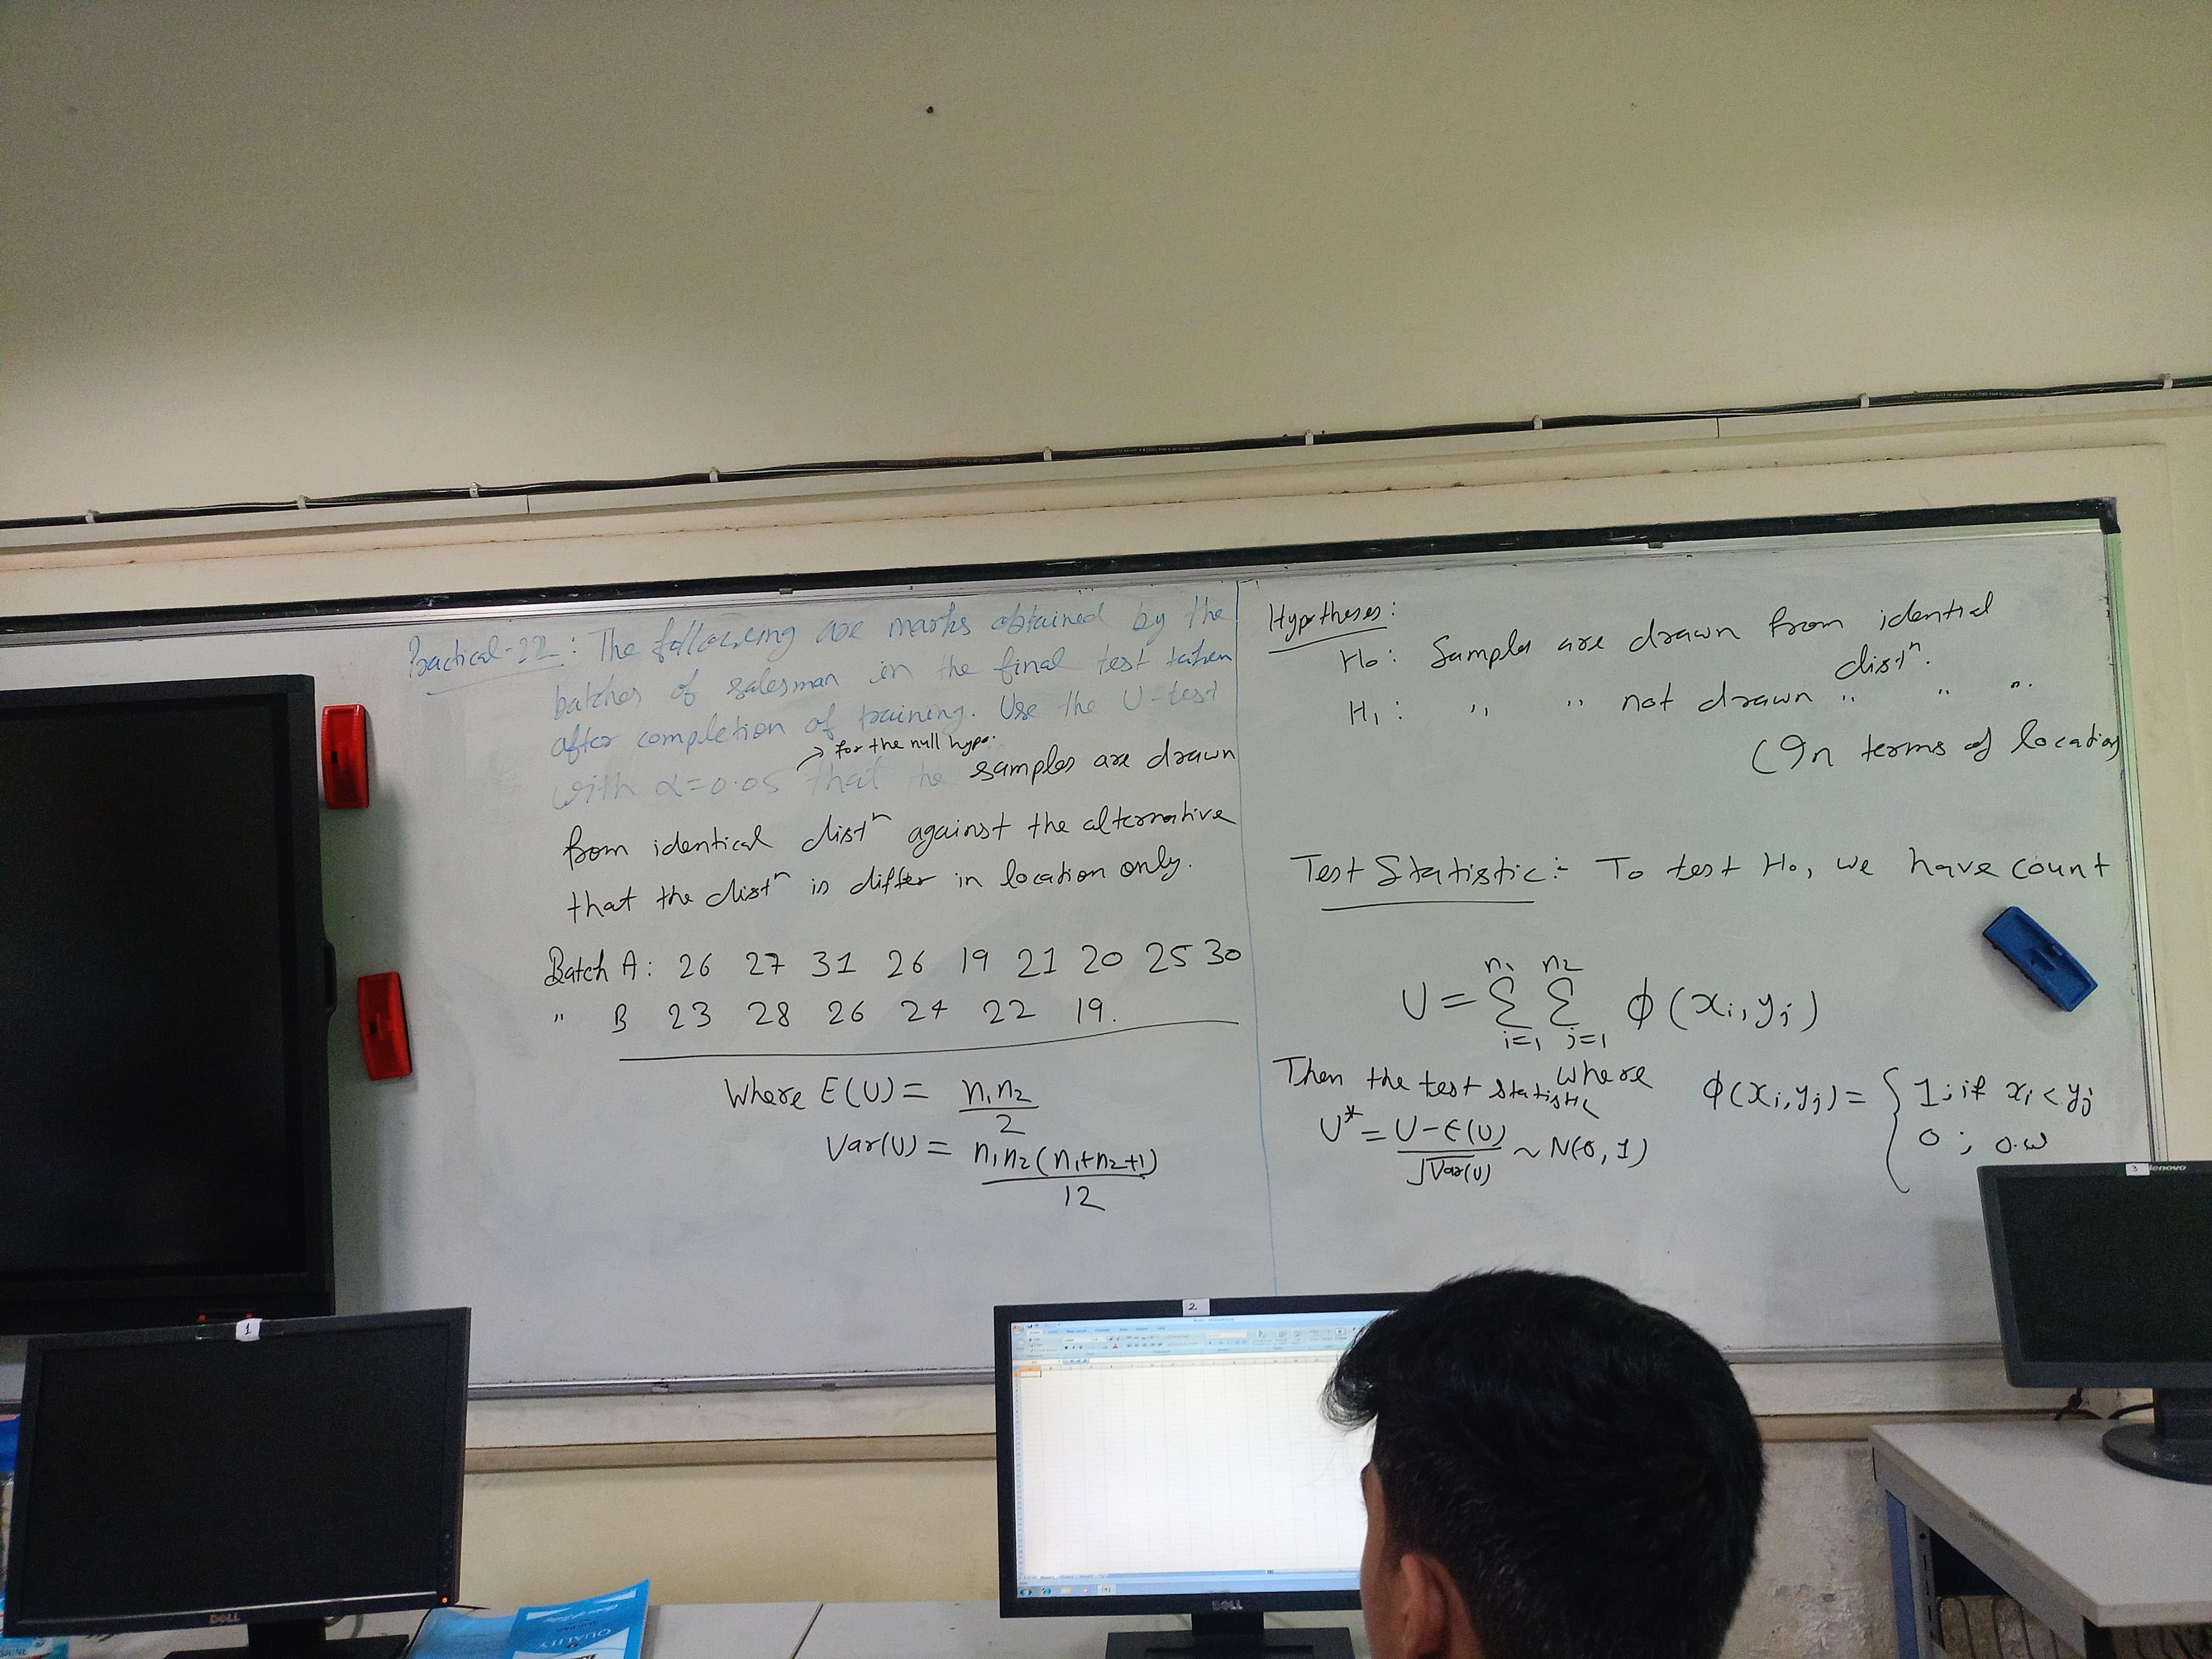 Practical-22 : The following are marks obtained by the
batches of salesman in the final test taken
after completion of training. Use the U-test
→ for the null hypo.
with α=0.05 that the samples are drawn
from identical distⁿ against the alternative
that the distⁿ is differ in location only.
Batch A: 26 27 31 26 19 21 20 25 30
" B 23 28 26 24 22 19.
Where E(U) = n₁n₂/2
Var(U) = n₁n₂(n₁+n₂+1)/12
Hyptheses:
H₀: Samples are drawn from idential
distⁿ.
H₁: " " not drawn " " ".
(In terms of location
Test Statistic:- To test H₀, we have count
U = Σ_{i=1}^{n₁} Σ_{j=1}^{n₂} φ(xᵢ,yⱼ)
where
φ(xᵢ,yⱼ) = { 1; if xᵢ < yⱼ
0; o.w
Then the test statistic
U* = U-E(U)/√Var(U) ~ N(0,1)
1
2
3
lenovo
DELL
DELL
QUALITY